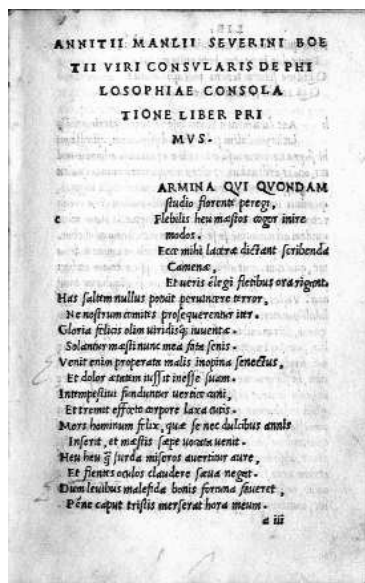 ANNITII MANLII SEVERINI BOE
TII VIRI CONSVLARIS DE PHI
LOSOPHIAE CONSOLA
TIONE LIBER PRI
MVS.
ARMINA QVI QVONDAM
ſtudio florente peregi,
c Flebilis heu mæſtos cogor inire
modos.
Ecce mihi laceræ dictant ſcribenda
Camenæ,
Et ueris elegi fletibus ora rigant.
Has ſaltem nullus potuit peruincere terror,
Ne noſtrum comites proſequerentur iter.
Gloria felicis olim uiridisq; iuuentæ.
Solantur mæſti nunc mea fata ſenis.
Venit enim properata malis inopina ſenectus,
Et dolor ætatem iuſſit ineſſe ſuam.
Intempeſtiui funduntur uertice cani,
Et tremit effœto corpore laxa cutis.
Mors hominum felix, quæ ſe nec dulcibus annis
Inſerit, et mæſtis ſæpe uocata uenit.
Heu heu q̃ ſurda miſeros auertitur aure,
Et flentes oculos claudere ſæua negat.
Dum leuibus malefida bonis fortuna faueret,
Pene caput triſtis merſerat hora meum.
a iii